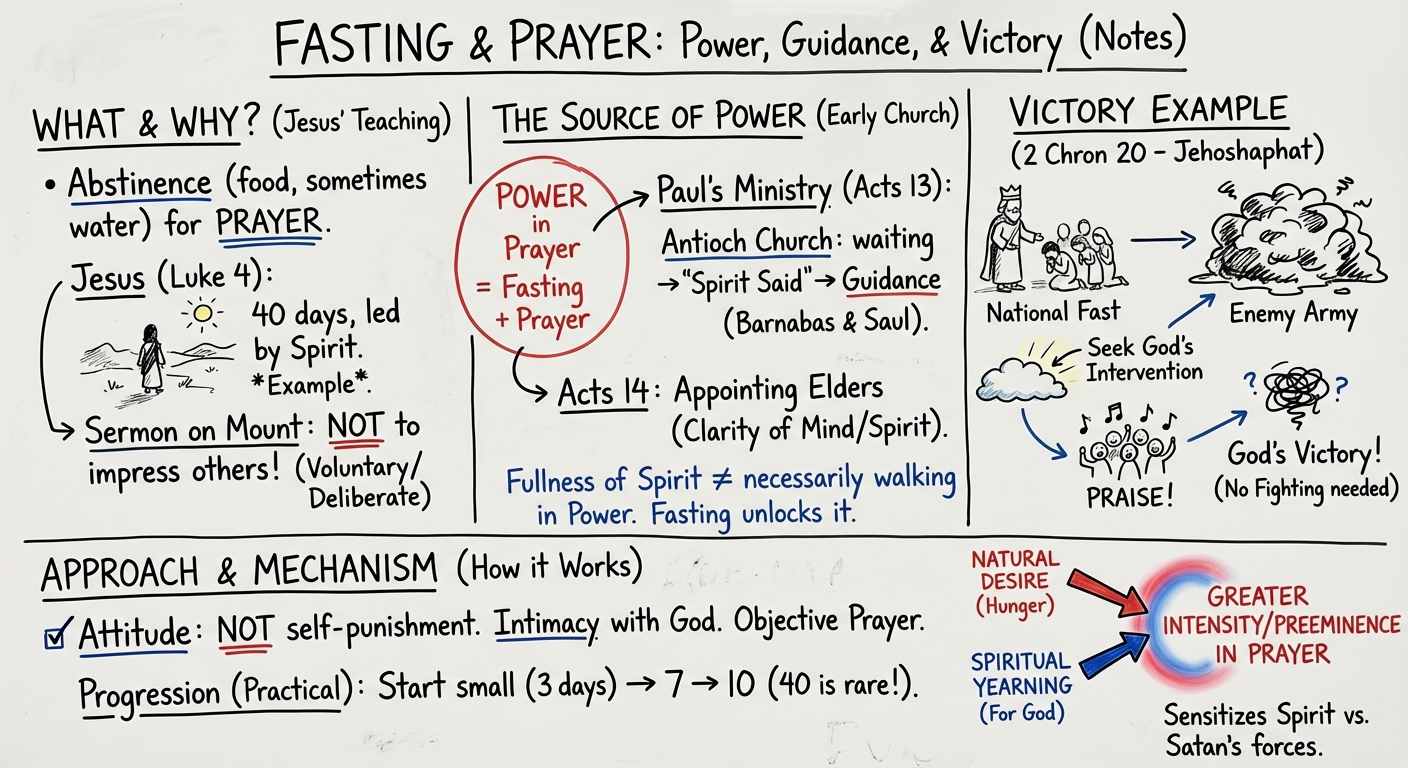 FASTING & PRAYER: Power, Guidance, & Victory (Notes)
WHAT & WHY? (Jesus' Teaching)
• Abstinence (food, sometimes
water) for PRAYER.
Jesus (Luke 4):
40 days, led
by Spirit.
*Example*.
Sermon on Mount: NOT to
impress others! (Voluntary/
Deliberate)
THE SOURCE OF POWER (Early Church)
POWER
in
Prayer
= Fasting
+ Prayer
Paul's Ministry (Acts 13):
Antioch Church: waiting
→"Spirit Said"→ Guidance
(Barnabas & Saul).
Acts 14: Appointing Elders
(Clarity of Mind/Spirit).
Fullness of Spirit ≠ necessarily walking
in Power. Fasting unlocks it.
VICTORY EXAMPLE
(2 Chron 20 – Jehoshaphat)
National Fast
Enemy Army
Seek God's
Intervention
PRAISE!
? ?
God's Victory!
(No Fighting needed)
APPROACH & MECHANISM (How it Works)
☑ Attitude: NOT self-punishment. Intimacy with God. Objective Prayer.
Progression (Practical): Start small (3 days) → 7 → 10 (40 is rare!).
NATURAL
DESIRE
(Hunger)
SPIRITUAL
YEARNING
(For God)
GREATER
INTENSITY/PREEMINENCE
IN PRAYER
Sensitizes Spirit vs.
Satan's forces.